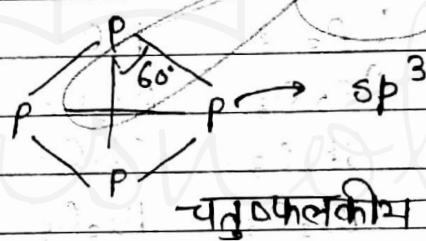 P
60°
P P → sp³
P
चतुष्फलकीय